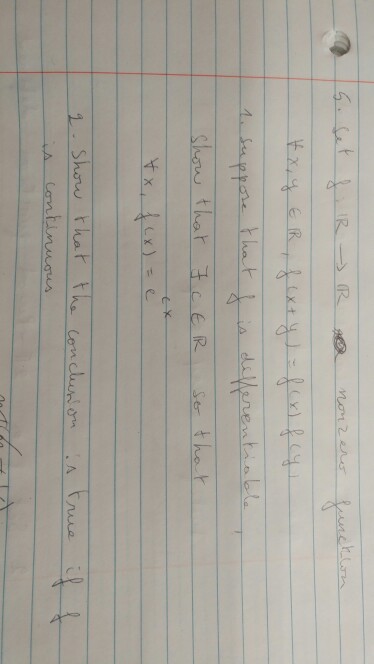 5. Let f : ℝ → ℝ nonzero function
∀ x, y ∈ ℝ, f(x+y) = f(x) f(y),
1. Suppose that f is differentiable,
Show that ∃ c ∈ ℝ so that
∀ x, f(x) = e^{cx}
2. Show that the conclusion is true if f
is continuous